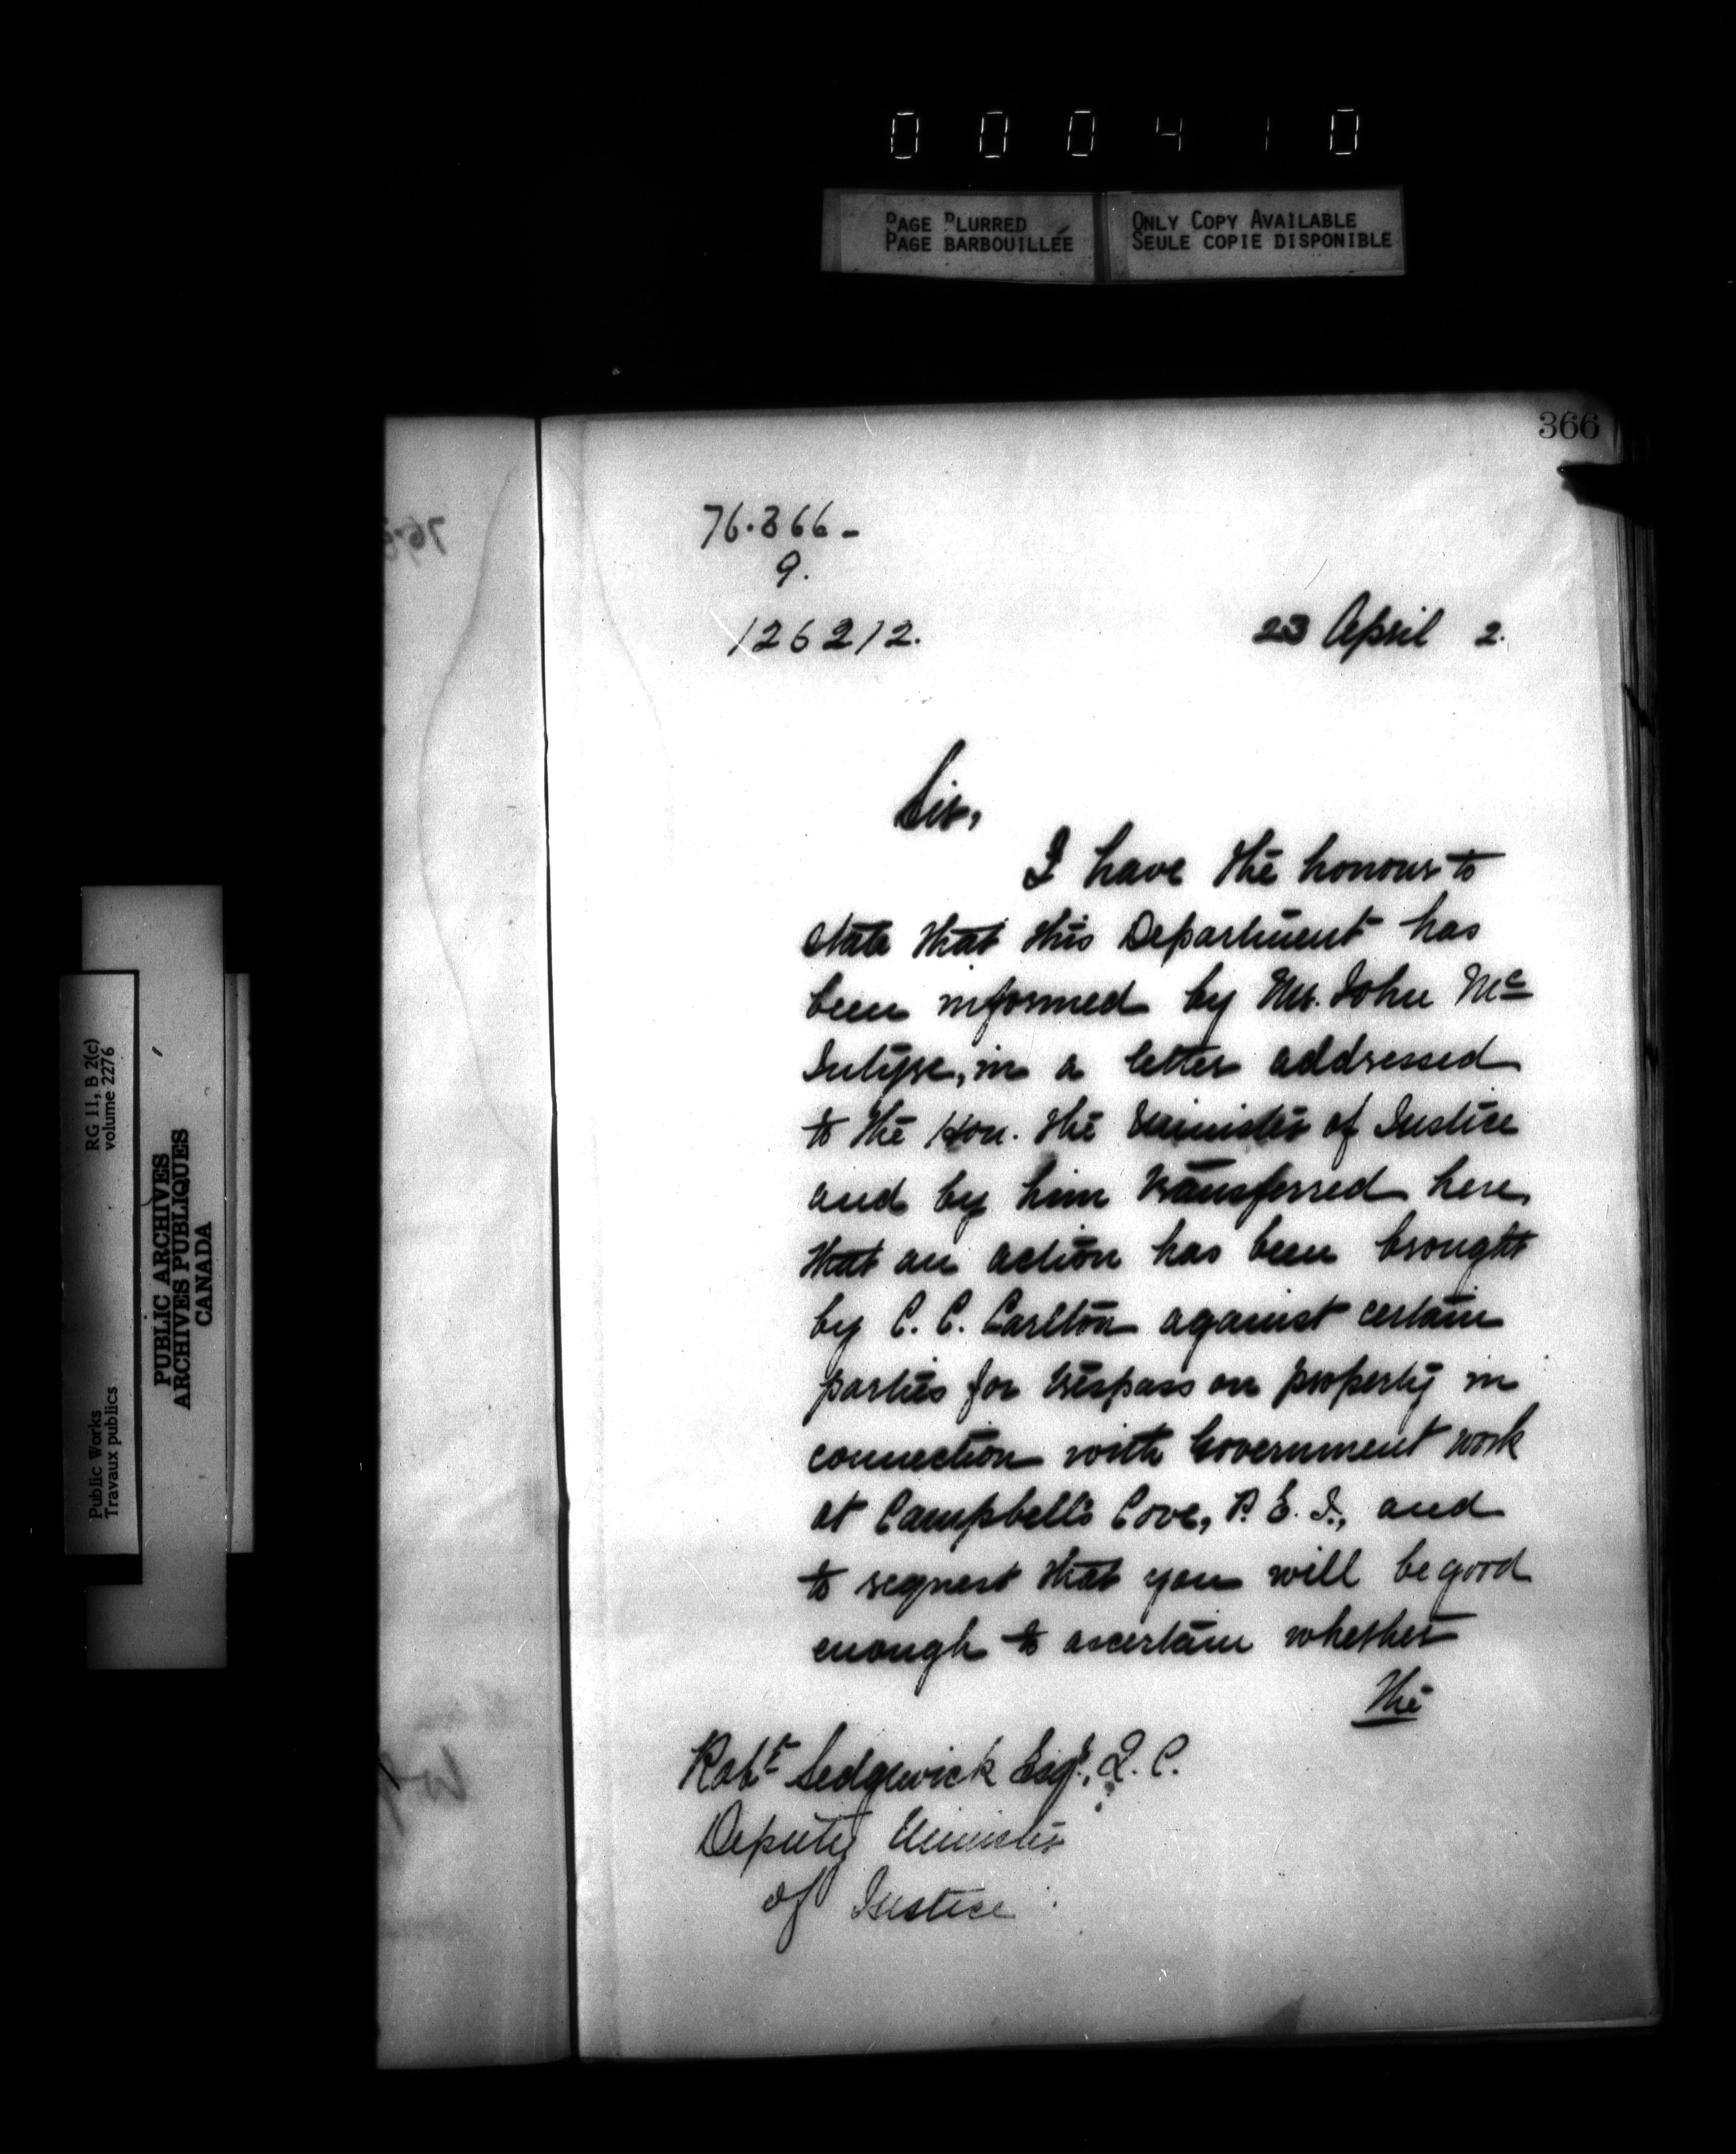 000410
PAGE BLURRED
PAGE BARBOUILLÉE
ONLY COPY AVAILABLE
SEULE COPIE DISPONIBLE
366
76.366-
9.
126212.
23 April 2.
Sir,
I have the honour to
state that this Department has
been informed by Mr. John Mc
in a letter addressed
to the Hon. the Minister of Justice
and by him transferred here,
that an action has been brought
by C. C. Carlton against certain
parties for trespass on property in
connection with Government work
at Campbell's Cove, P. E. I., and
to request that you will be good
enough to ascertain whether
the
Robt Sedgewick Esqr, Q. C.
Deputy Minister
of Justice
RG 11, B 2(c)
volume 2276
Public Works
Travaux publics
PUBLIC ARCHIVES
ARCHIVES PUBLIQUES
CANADA